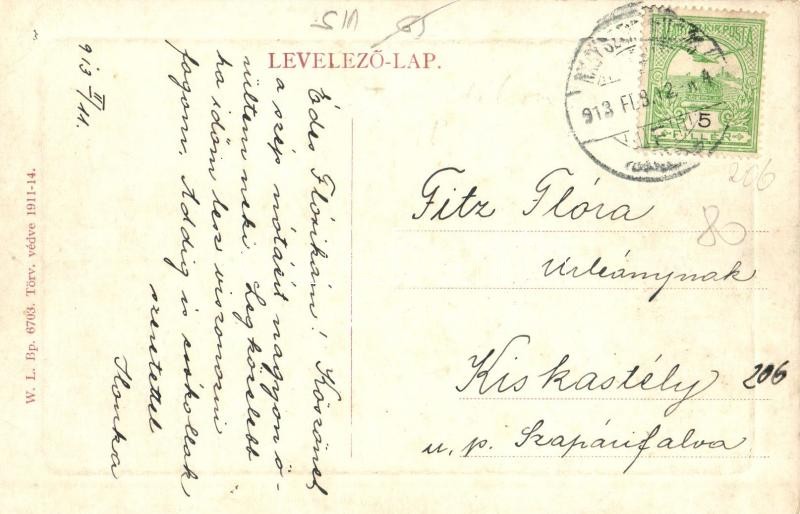 LEVELEZŐ-LAP.
MAGYAR KIR. POSTA
5
FILLÉR
913 FEB 12
511
85
206
80
Fitz Flóra
Urleánynak
Kiskastély
206
u. p. Szapárifalva
913 II/11.
Édes Flórikám! Köszönet
a szép nótáért nagyon ö-
rültem neki. Legközelebb
ha időm lesz viszonozni
fogom. Addig is csókollak
szeretettel
Ilonka
W. L. Bp. 6703. Törv. védve 1911-14.